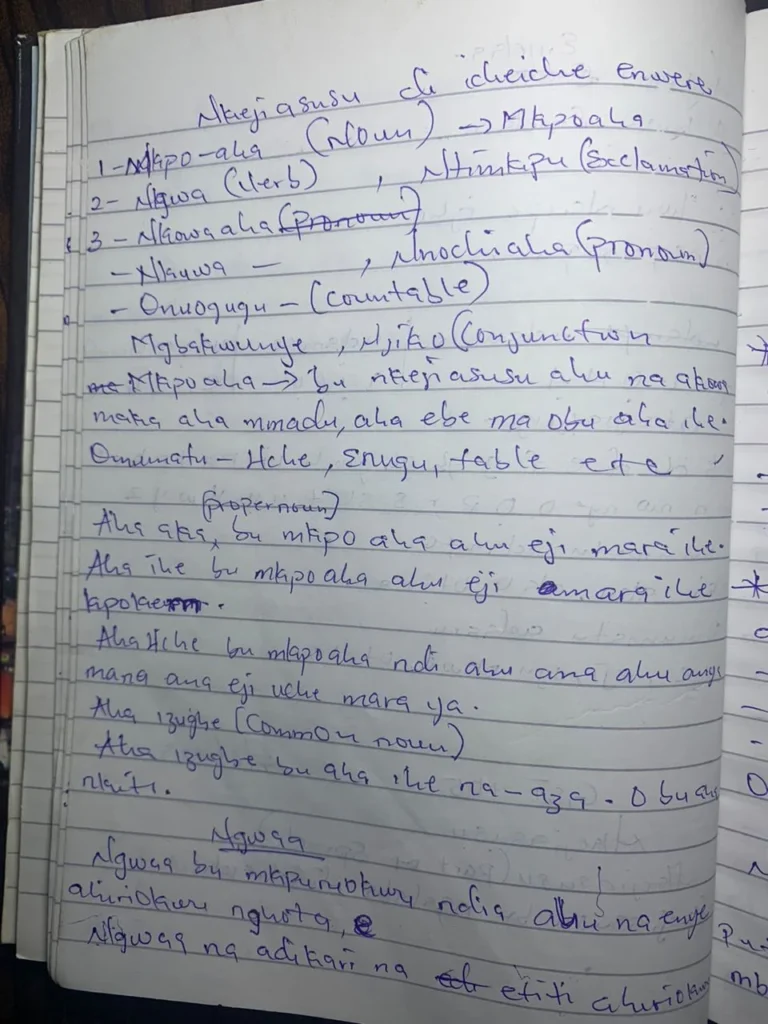 Nkejiasusu di icheiche enwere
1-Mkpo-aha (Noun) → Mkpoaha
2- Ngwa (Verb) , Ntimkpu (Exclamation)
3 - Nkowaaha (pronoun)
- Nkuwa - , Nnochiaha (pronoun)
- Onuogugu - (countable)
Mgbakwunye , Njiko (Conjunction
Mkpoaha → bu nkejiasusu ahu na akowa
maka aha mmadu, aha ebe ma obu aha ihe.
Omumatu - Uche , Enugu, table ete
(propernoun)
Aha aka, bu mkpo aha ahu eji mara ihe.
Aha ihe bu mkpoaha ahu eji amara ihe
kpokem.
Aha Uche bu mkpoaha ndi ahu ana ahu anya
mana ana eji uche mara ya.
Aha izugbe (Common noun)
Aha izugbe bu aha ihe na-aza. Obu aha
nkiti.
Ngwaa
Ngwaa bu mkpuruokwu ndia ahu na enye
ahiriokwu nghota,
Ngwaa na adikari na etiti ahiriokwu